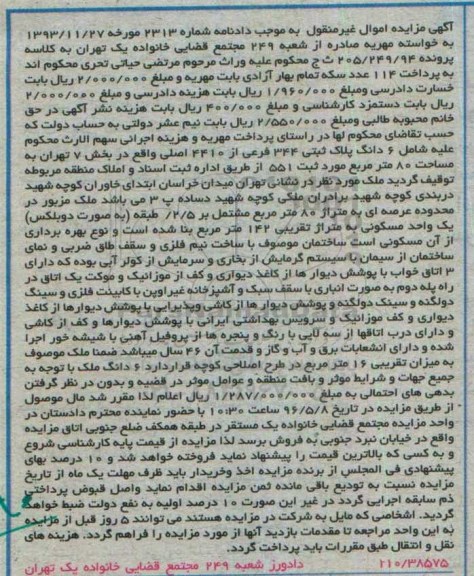 آگهی مزایده اموال غیرمنقول به موجب دادنامه شماره ۲۳۱۳ مورخه ۱۳۹۳/۱۱/۲۷
به خواسته مهریه صادره از شعبه ۲۴۹ مجتمع قضایی خانواده یک تهران به کلاسه
پرونده ۲۰۵/۲۴۹/۹۴ ث ج محکوم علیه وراث مرحوم مرتضی حیاتی تحری محکوم اند
به پرداخت ۱۱۴ عدد سکه تمام بهار آزادی بابت مهریه و مبلغ ۲/۰۰۰/۰۰۰ ریال بابت
خسارت دادرسی ومبلغ ۱/۹۶۰/۰۰۰ ریال بابت هزینه دادرسی و مبلغ ۲/۰۰۰/۰۰۰
ریال بابت دستمزد کارشناسی و مبلغ ۴۰۰/۰۰۰ ریال بابت هزینه نشر آگهی در حق
خانم محبوبه طالبی ومبلغ ۲/۵۵۰/۰۰۰ ریال بابت نیم عشر دولتی به حساب دولت که
حسب تقاضای محکوم لها در راستای پرداخت مهریه و هزینه اجرانی سهم الارث محکوم
علیه شامل ۶ دانگ پلاک ثبتی ۳۴۴ فرعی از ۴۴۱۰ اصلی واقع در بخش ۷ تهران به
مساحت ۸۰ متر مربع مورد ثبت ۵۵۱ از طریق اداره ثبت اسناد و املاک منطقه مربوطه
توقیف گردید ملک مورد نظر در نشانی تهران میدان خراسان ابتدای خاوران کوچه شهید
دربندی کوچه شهید برادران ملکی کوچه شهید دساده پ ۳ می باشد ملک مزبور در
محدوده عرصه ای به متراژ ۸۰ متر مربع مشتمل بر ۲/۵ طبقه (به صورت دوبلکس)
یک واحد مسکونی به متراژ تقریبی ۱۴۲ متر مربع بنا شده است و نوع بهره برداری
از آن مسکونی است ساختمان موصوف با ساخت نیم فلزی و سقف طاق ضربی و نمای
ساختمان از سیمان با سیستم گرمایش از بخاری و سرمایش از کولر آبی بوده که دارای
۳ اتاق خواب با پوشش دیوار ها از کاغذ دیواری و کف از موزانیک و موکت یک اتاق در
راه پله دوم به صورت انباری با سقف سبک و آشپزخانه غیراوپن با کابینت فلزی و سینگ
دولگنه و سینک دولگنه و پوشش دیوار ها از کاشی وپذیرایی با پوشش دیوارها از کاغذ
دیواری و کف موزانیک و سرویس بهداشتی ایرانی با پوشش دیوارها و کف از کاشی
و دارای درب اتاقها از سه لایی با رنگ و پنجره ها از پروفیل آهنی با شیشه خور اجرا
شده و دارای انشعابات برق و آب و گاز و قدمت آن ۴۶ سال میباشد ضمنا ملک موصوف
به میزان تقریبی ۱۶ متر مربع در طرح اصلاحی کوچه قراردارد ۶ دانگ ملک با توجه به
جمیع جهات و شرایط موثر و بافت منطقه و عوامل موثر در قضیه و بدون در نظر گرفتن
بدهی های احتمالی به مبلغ ۱/۲۸۷/۰۰۰/۰۰۰ ریال اعلام لذا مقرر شد مال موصول
از طریق مزایده در تاریخ ۹۶/۵/۸ ساعت ۱۰:۳۰ با حضور نماینده محترم دادستان در
واحد مزایده مجتمع قضایی خانواده یک مستقر در طبقه همکف ضلع جنوبی اتاق مزایده
واقع در خیابان نبرد جنوبی به فروش برسد لذا مزایده از قیمت پایه کارشناسی شروع
و به کسی که بالاترین قیمت را پیشنهاد نماید فروخته خواهد شد و ۱۰ درصد بهای
پیشنهادی فی المجلس از برنده مزایده اخذ وخریدار باید ظرف مهلت یک ماه از تاریخ
مزایده نسبت به تودیع باقی مانده ثمن مزایده اقدام نماید واصل قبوض پرداختی
ذم سابقه اجرایی گردد در غیر این صورت ۱۰ درصد اولیه به نفع دولت ضبط خواهد
گردید. اشخاصی که مایل به شرکت در مزایده هستند می توانند ۵ روز قبل از مزایده
به این واحد مراجعه تا مقدمات بازدید آنها از مورد مزایده را فراهم گردد. هزینه های
نقل و انتقال طبق مقررات باید پرداخت گردد.
۲۱۰/۳۸۵۷۵ دادورز شعبه ۲۴۹ مجتمع قضایی خانواده یک تهران